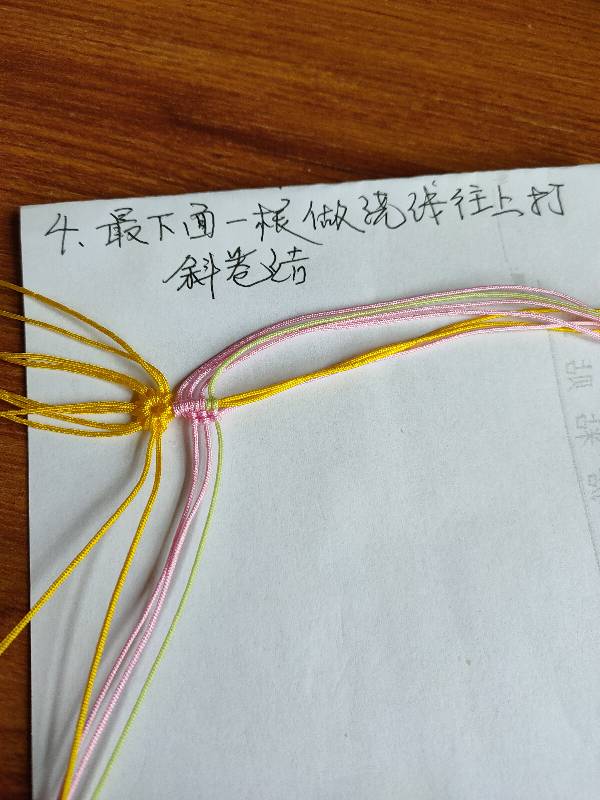 4、最下面一根做绕线往上打
斜卷结